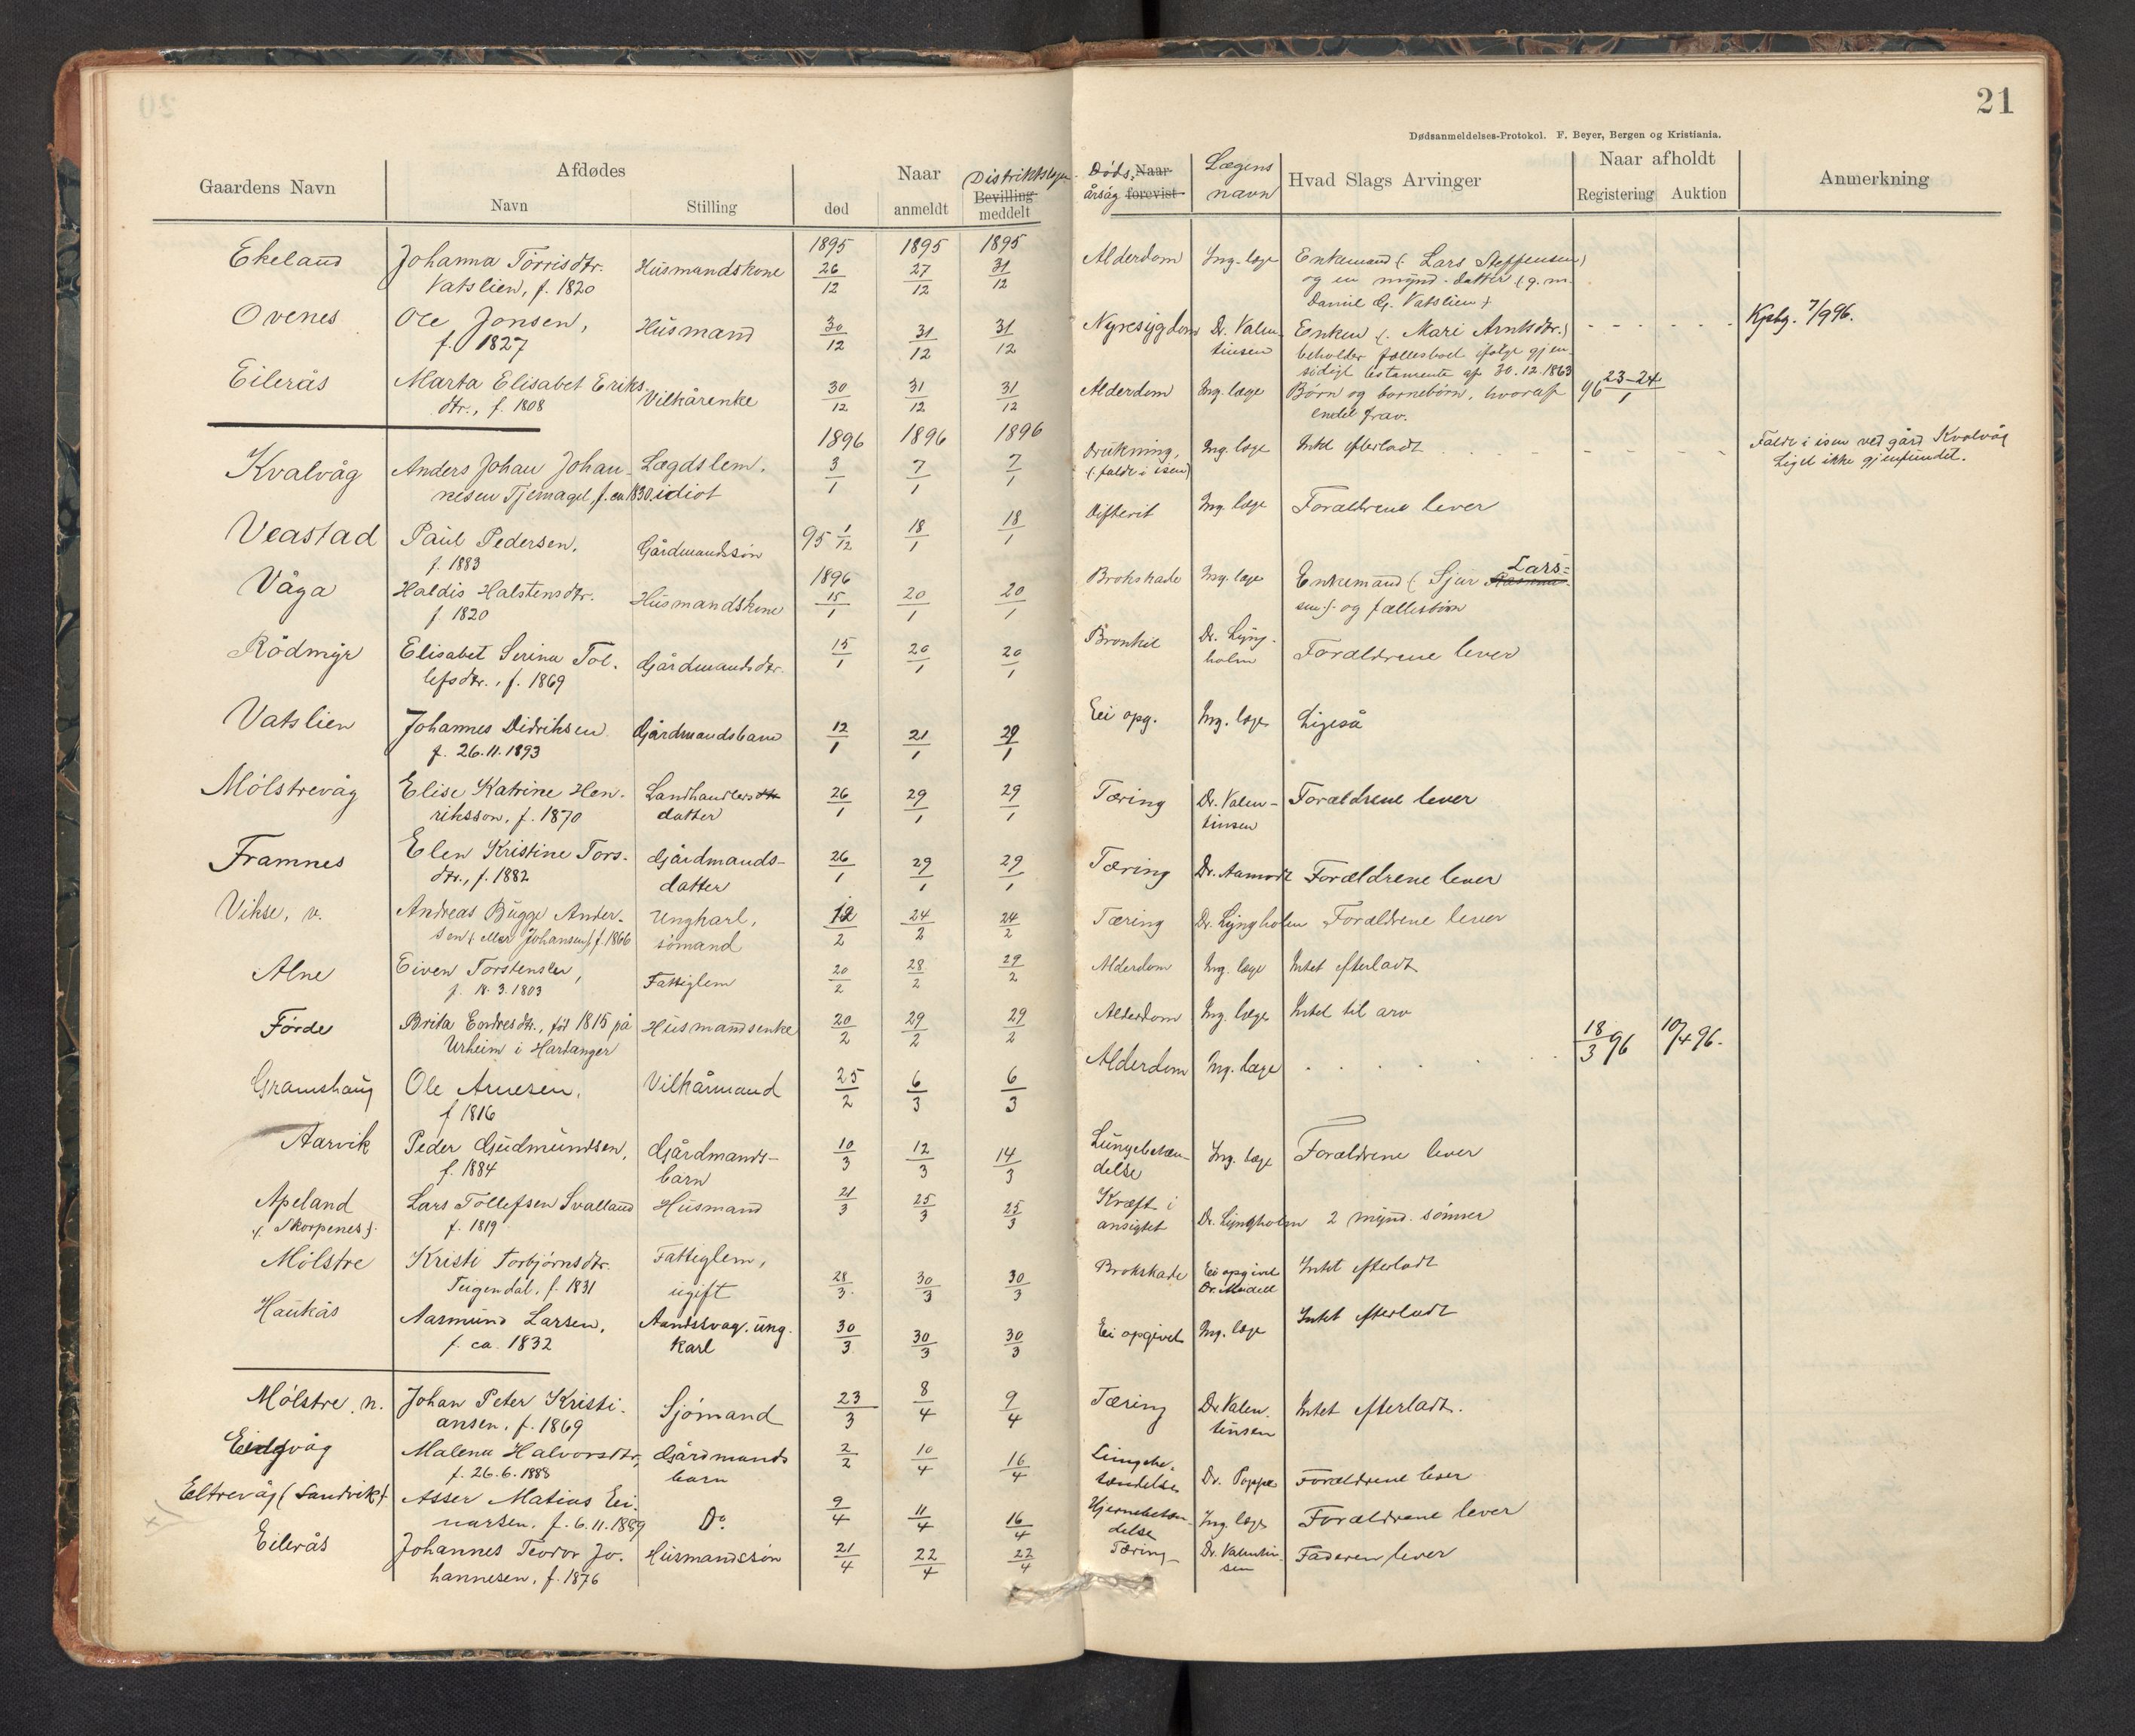 21
Dødsanmeldelses-Protokol. F. Beyer, Bergen og Kristiania.
Gaardens Navn
Afdødes
Navn
Stilling
Naar
død
anmeldt
Distriktslægen
Bevilling
meddelt
Døds,
Naar
årsag
forevist
Lægens
navn
Hvad Slags Arvinger
Naar afholdt
Registering
Auktion
Anmerkning
1895 1895 1895
Ekeland Johanna Törrisdtr. Husmandskone 26/12 27/12 31/12 Alderdom Ing. læge Enkemand (: Lars Steffensen)
Vatslien, f. 1820 og en mynd. datter (g. m.
Daniel G. Vatslien)
Ovenes Ole Jonsen, Husmand 30/12 31/12 31/12 Nyresygdom Dr. Valen- Enken (: Mari Arntsdtr.) Kpbg. 7/9 96.
f. 1827 tinsen beholder fællesboet ifølge gjen-
sidigt testamente af 30.12.1863
Eilerås Marta Elisabet Eriks- Vilkårenke 30/12 31/12 31/12 Alderdom Ing. læge Børn og børnebørn, hvoraf 96 23-24/1
dtr., f. 1808 endel frav.
1896 1896 1896
Kvalvåg Anders Johan Johan- Lægdslem, 3/1 7/1 7/1 Drukning, Ing. læge Intet efterladt Faldt i isen ved gård Kvalvåg
nesen Tjernagel f. ca. 1830. idiot (faldt i isen) Liget ikke gjenfundet.
Veastad Paul Pedersen, Gårdmandssøn 95 1/12 18/1 18/1 Difterit Ing. læge Forældrene lever
f. 1883
1896
Våga Haldis Halstensdtr. Husmandskone 15/1 20/1 20/1 Brokskade Ing. læge Enkemand (: Sjur Lars-
f. 1820 sen) og fællesbørn
Rödmyr Elisabet Serina Tol- Gårdmandsdtr. 15/1 20/1 20/1 Bronkit Dr. Lyng- Forældrene lever
lefsdtr., f. 1869 holm
Vatslien Johannes Didriksen Gårdmandsbarn 12/1 21/1 29/1 Ei opg. Ing. læge Ligeså
f. 26.11.1893
Mölstrevåg Elise Katrine Hen- Landhandlers dtr 26/1 29/1 29/1 Tæring Dr. Valen- Forældrene lever
riksson, f. 1870 datter tinsen
Framnes Elen Kristine Tors- Gårdmands- 26/1 29/1 29/1 Tæring Dr. Aamodt Forældrene lever
dtr., f. 1882 datter
Vikse, v. Andreas Bugge Ander- Ungkarl, 12/2 24/2 24/2 Tæring Dr. Lyngholm Forældrene lever
sen (eller Johansen) f. 1866 sömand
Alne Eiven Torstensen, Fattiglem 20/2 28/2 29/2 Alderdom Ing. læge Intet efterladt
f. 18.3.1803
Förde Brita Endresdtr., föt 1815 på Husmandsenke 20/2 29/2 29/2 Alderdom Ing. læge Intet til arv
Urheim i Hardanger
Gramshaug Ole Arnesen, Vilkårmand 25/2 6/3 6/3 Alderdom Ing. læge 18/3 96 10/4 96.
f 1816
Aarvik Peder Gudmundsen, Gårdmands- 10/3 12/3 14/3 Lungebetæn- Ing. læge Forældrene lever
f. 1884 barn delse
Apeland Lars Tollefsen Svalland Husmand 21/3 25/3 25/3 Kræft i Dr. Lyngholm 2 mynd. sönner
(: Skorpenes). f. 1819 ansigtet
Mölstre Kristi Torbjörnsdtr. Fattiglem, 28/3 30/3 30/3 Brokskade Ei opgivet Intet efterladt
Teigendal, f. 1831 ugift Dr. Meidell
Haukås Aasmund Larsen, Aandssvag, ung- 30/3 30/3 30/3 Ei opgivet Ing. læge Intet efterladt
f. ca. 1832 karl
Mölstre, n. Johan Peter Kristi- Sjömand 23/3 8/4 9/4 Tæring Dr. Valen- Intet efterladt.
ansen, f. 1869 tinsen
Eidgvåg Malena Halvorsdtr, Gårdmands 2/2 10/4 16/4 Lungebe- Dr. Poppe Forældrene lever
f. 26.6.1888 barn tændelse
Eltrevåg (Sandvik) Asser Matias Ei- Do. 9/4 11/4 16/4 Hjernebetæn- Ing. læge Forældrene lever
narsen, f. 6.11.1889 delse
Eilerås Johannes Teodor Jo- Husmandssön 21/4 22/4 22/4 Tæring Dr. Valentin- Faderen lever
hannesen, f. 1876 sen